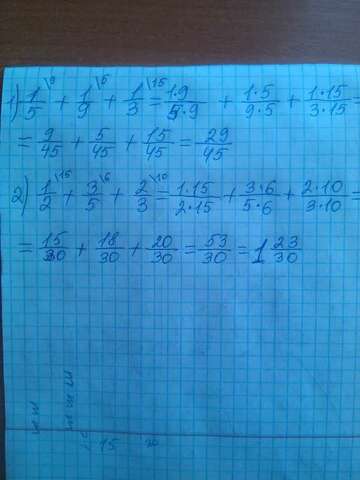 1) 1/5 \9 + 1/9 \5 + 1/3 \15 = 1·9/5·9 + 1·5/9·5 + 1·15/3·15 =
= 9/45 + 5/45 + 15/45 = 29/45
2) 1/2 \15 + 3/5 \6 + 2/3 \10 = 1·15/2·15 + 3·6/5·6 + 2·10/3·10 =
= 15/30 + 18/30 + 20/30 = 53/30 = 1 23/30